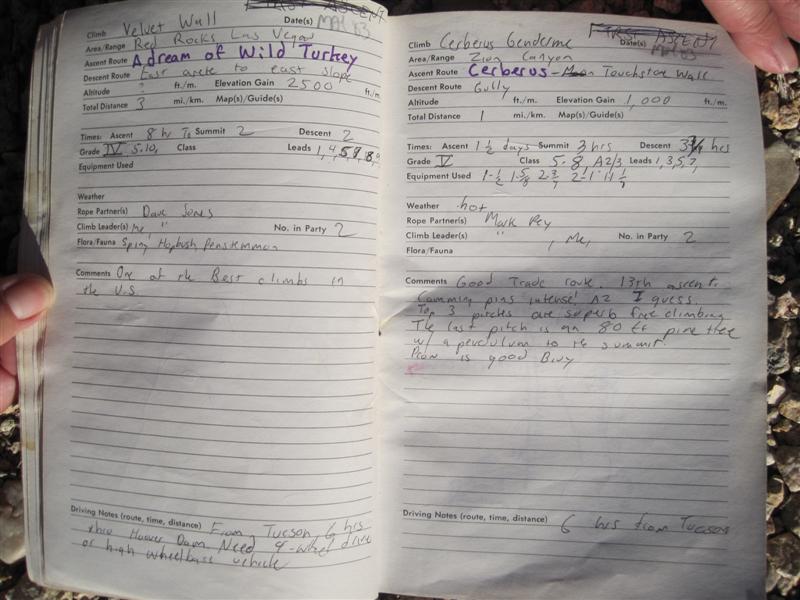 FIRST ASCENT
Climb Velvet Wall Date(s) MAR 83
Area/Range Red Rocks Las Vegas
Ascent Route A dream of Wild Turkey
Descent Route East arete to east slope
Altitude ? ft./m. Elevation Gain 2500 ft./m.
Total Distance 3 mi./km. Map(s)/Guide(s)
Times: Ascent 8 hr To Summit 2 Descent 2
Grade IV 5.10, Class Leads 1,4,5,7,8,9
Equipment Used
Weather
Rope Partner(s) Dave Jones
Climb Leader(s) Me, " No. in Party 2
Flora/Fauna Spiny Hopbush, Penstemmon
Comments One of the Best climbs in
the U.S
Driving Notes (route, time, distance) From Tucson, 6 hrs
thro Hoover Dam Need 4-wheel drive
or high wheelbase vehicle
FIRST ASCENT
Climb Cerberus Genderme Date(s) MAR 83
Area/Range Zion Canyon
Ascent Route Cerberus - Touchstone Wall
Descent Route Gully
Altitude ft./m. Elevation Gain 1,000 ft./m.
Total Distance 1 mi./km. Map(s)/Guide(s)
Times: Ascent 1 1/2 days Summit 3 hrs Descent hrs
Grade V Class 5.8 A2/3 Leads 1,3,5,7,
Equipment Used
Weather hot
Rope Partner(s) Mark Pey
Climb Leader(s) " , Me, No. in Party 2
Flora/Fauna
Comments Good Trade route. 13th ascent.
Camming pins intense! A2 I guess.
Top 3 pitches are superb free climbing
The last pitch is an 80 ft pine tree
w/ a pendulum to the summit.
is good Bivy
Driving Notes (route, time, distance) 6 hrs from Tucson